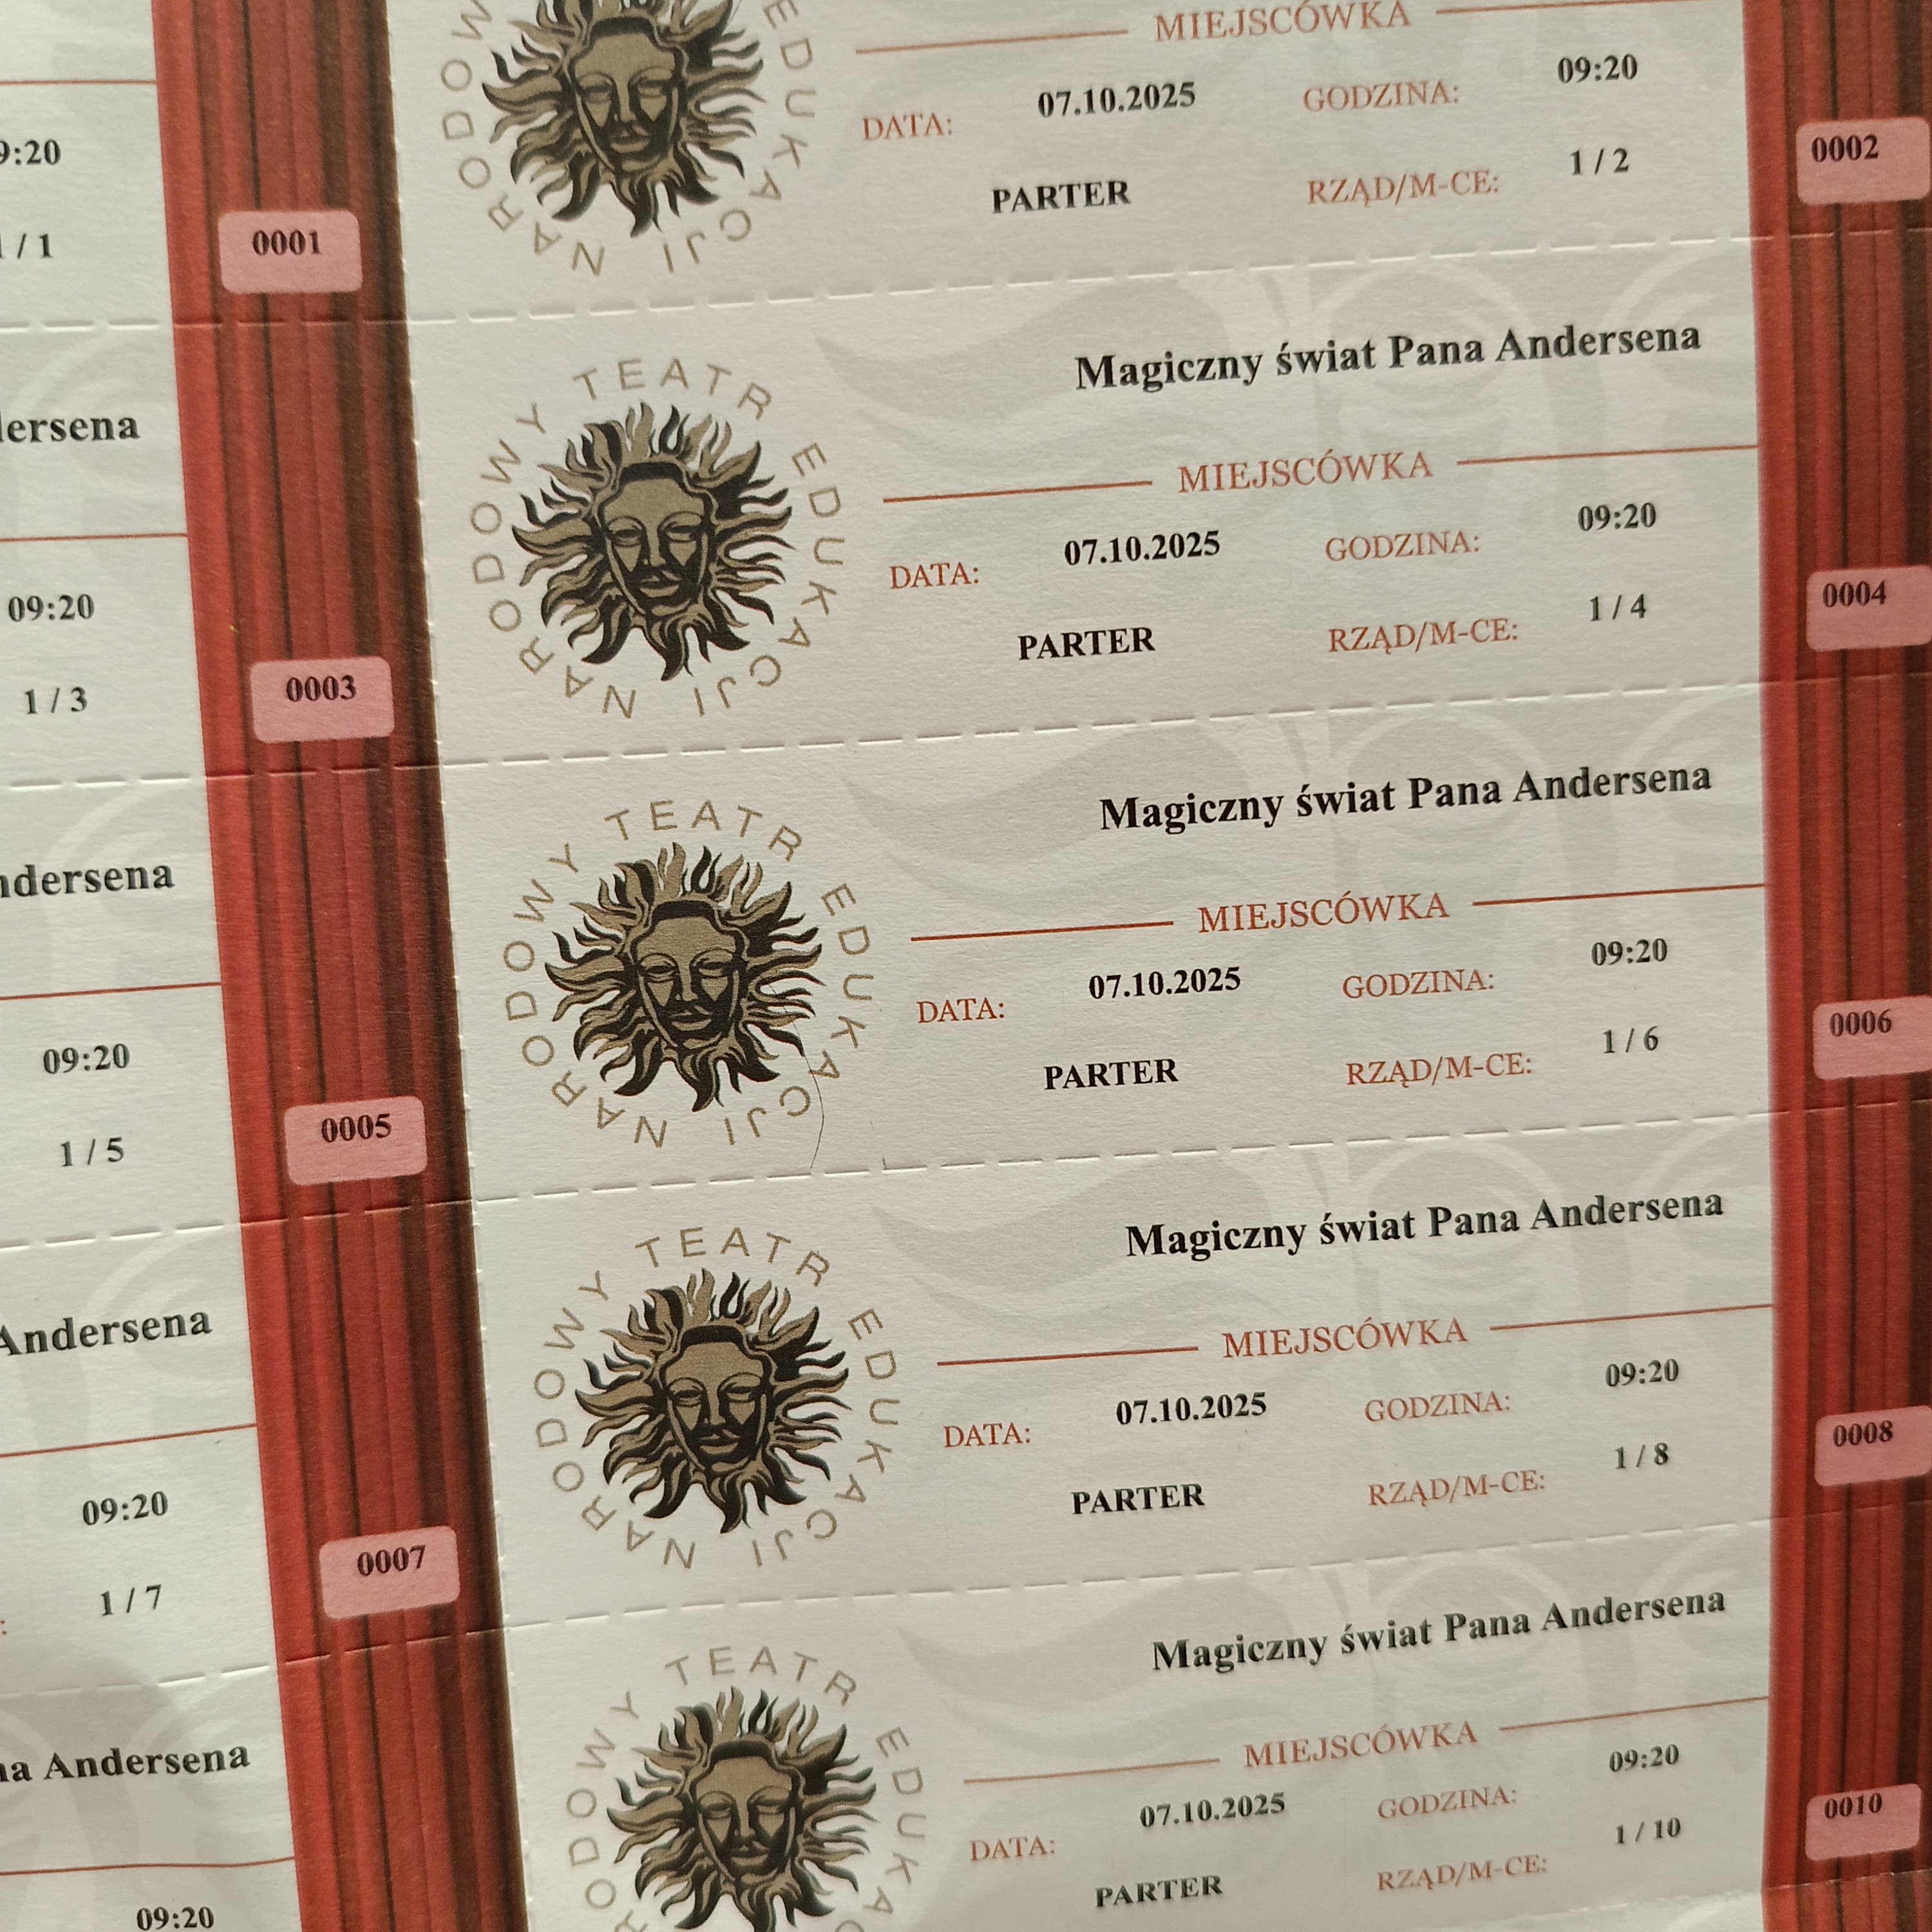 MIEJSCÓWKA
DATA: 07.10.2025 GODZINA: 09:20
PARTER RZĄD/M-CE: 1 / 2
0002
09:20
/ 1
0001
NARODOWY TEATR EDUKACJI
Magiczny świat Pana Andersena
MIEJSCÓWKA
DATA: 07.10.2025 GODZINA: 09:20
PARTER RZĄD/M-CE: 1 / 4
0004
09:20
1 / 3
0003
NARODOWY TEATR EDUKACJI
Magiczny świat Pana Andersena
MIEJSCÓWKA
DATA: 07.10.2025 GODZINA: 09:20
PARTER RZĄD/M-CE: 1 / 6
0006
09:20
1 / 5
0005
Andersena
NARODOWY TEATR EDUKACJI
Magiczny świat Pana Andersena
MIEJSCÓWKA
DATA: 07.10.2025 GODZINA: 09:20
PARTER RZĄD/M-CE: 1 / 8
0008
09:20
1 / 7
0007
Andersena
NARODOWY TEATR EDUKACJI
Magiczny świat Pana Andersena
MIEJSCÓWKA
DATA: 07.10.2025 GODZINA: 09:20
PARTER RZĄD/M-CE: 1 / 10
0010
09:20